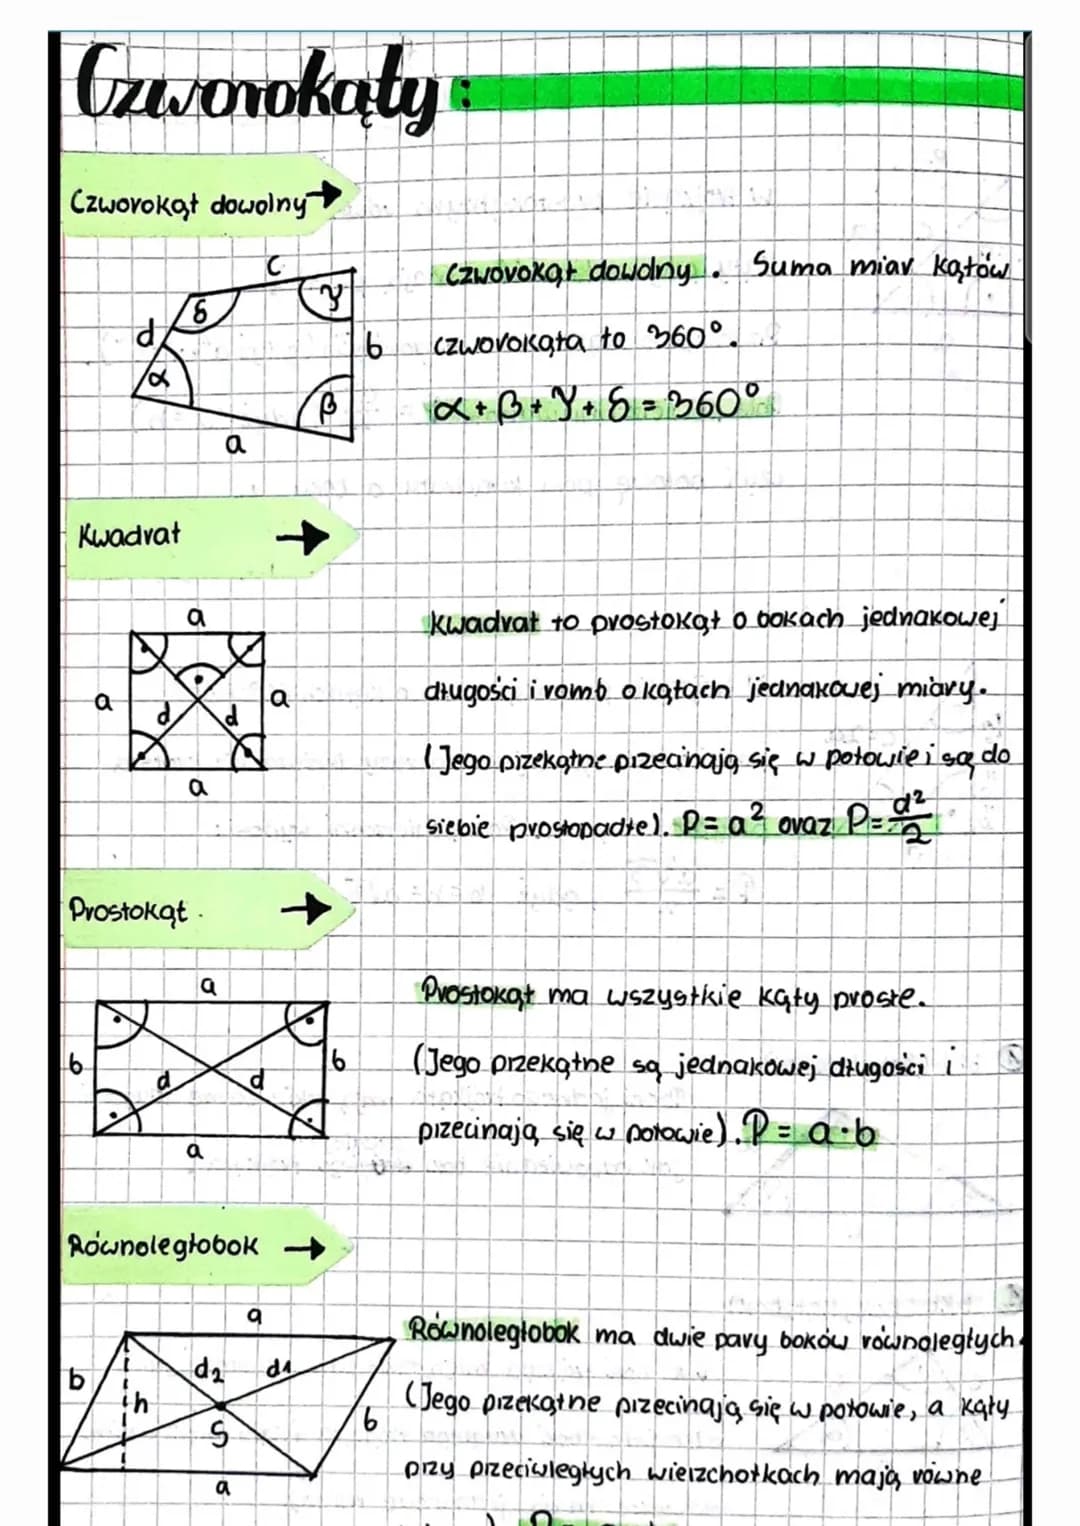 Czworokąty:
Czworokąt dowolny →
c
δ
γ
d
b
α
β
a
Czworokąt dowolny. Suma miar kątów
czworokąta to 360°.
α+β+γ+δ=360°
Kwadrat →
a
a
a
d
d
a
Kwadrat to prostokąt o bokach jednakowej
długości i romb o kątach jednakowej miary.
(Jego przekątne przecinają się w połowie i są do
siebie prostopadłe). P=a² oraz P=d²/2
Prostokąt →
a
b
b
d
d
a
Prostokąt ma wszystkie kąty proste.
(Jego przekątne są jednakowej długości i
przecinają się w połowie). P=a·b
Równoległobok →
a
d₂
d₁
b
h
b
S
a
Równoległobok ma dwie pary boków równoległych.
(Jego przekątne przecinają się w połowie, a kąty
przy przeciwległych wierzchołkach mają równe